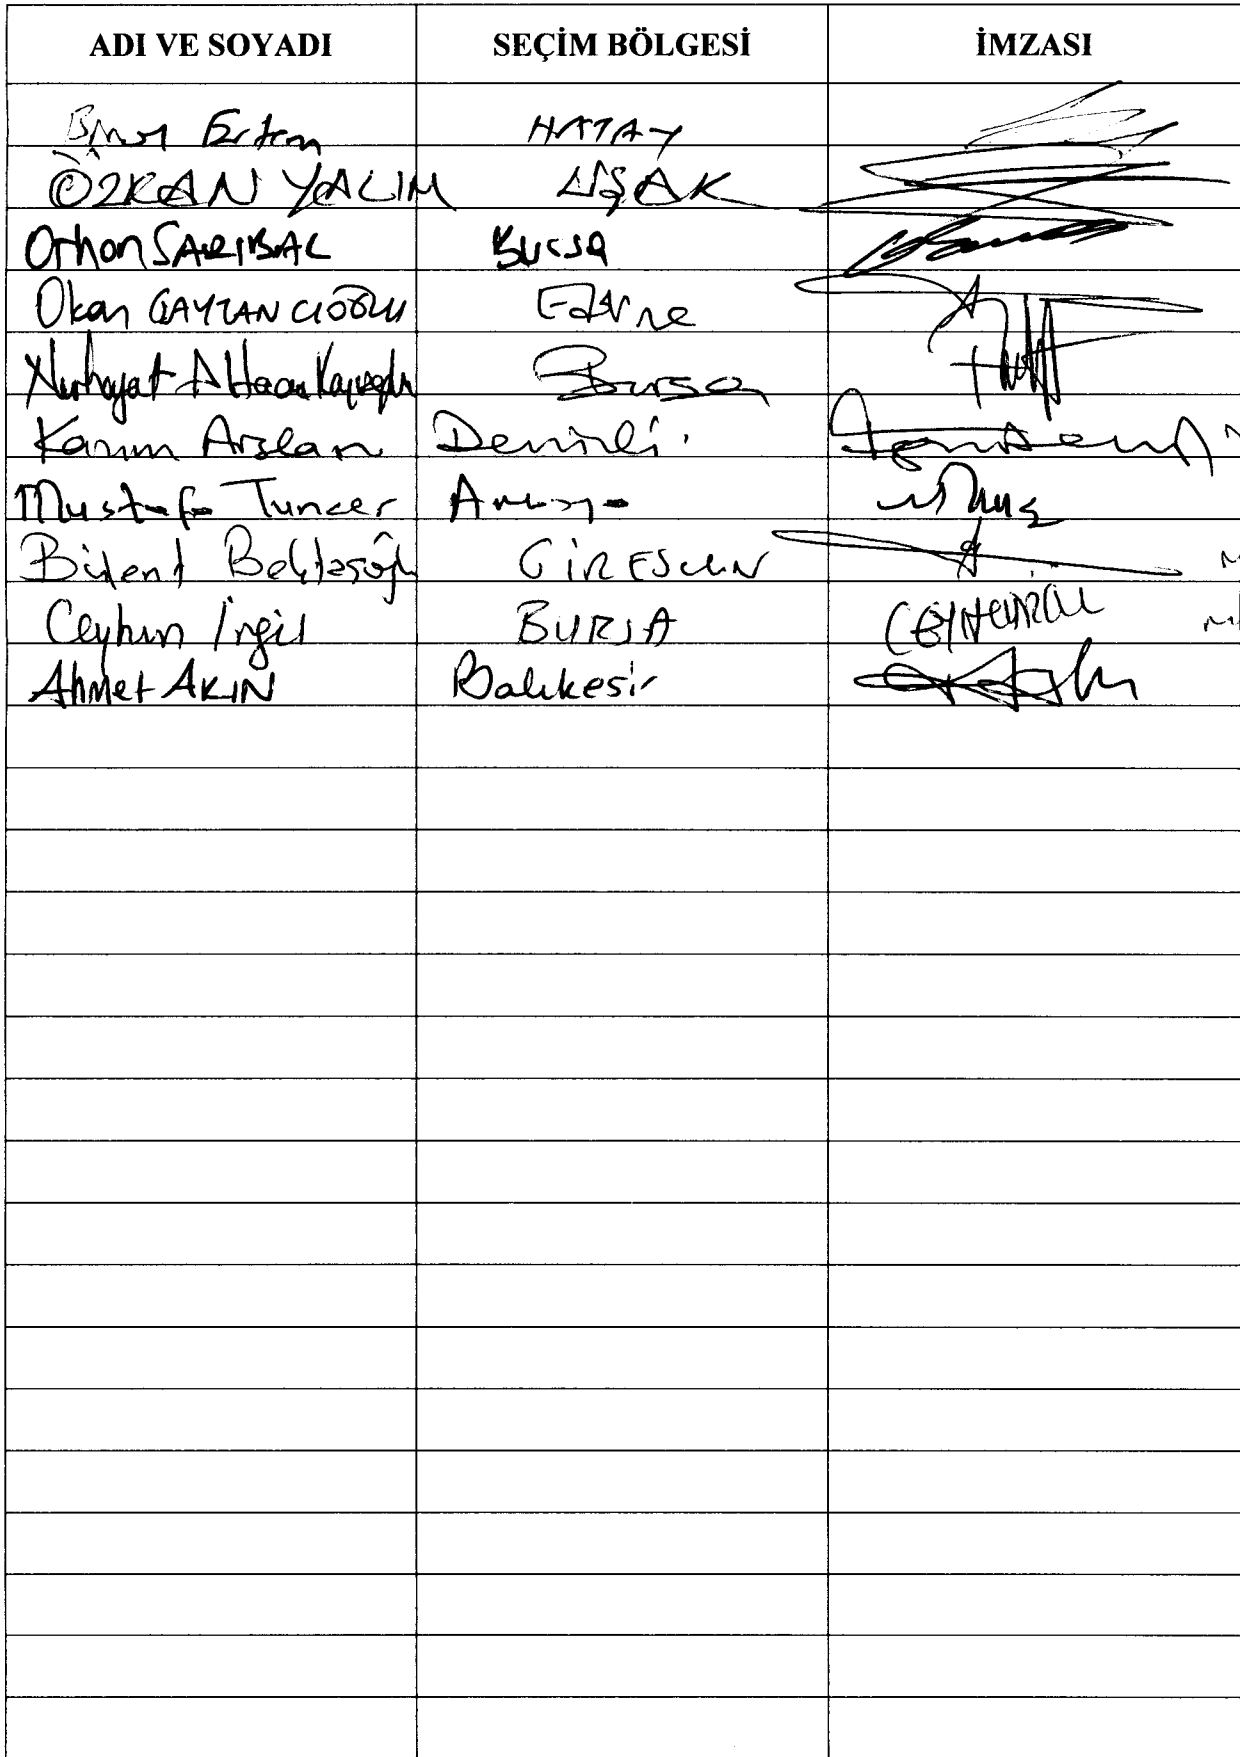 ADI VE SOYADI SEÇİM BÖLGESİ İMZASI
Ertem HATAY
ÖZKAN YALIM UŞAK
Orhan SARIBAL Bursa
Okan GAYTANCIOĞLU Edirne
Nurhayat Altaca Kayışoğlu Bursa
Kazım Arslan Denizli
Mustafa Tuncer Amasya
Bülent Bektaşoğlu GİRESUN
Ceyhun İrgil BURSA
Ahmet AKIN Balıkesir